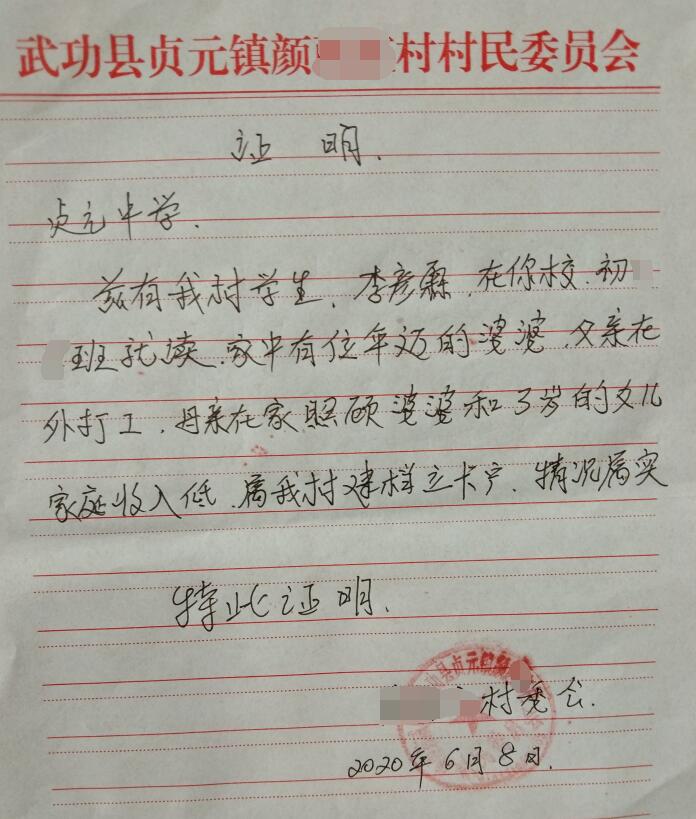 武功县贞元镇颜村村民委员会
证 明.
贞元中学.
兹有我村学生,李彦霖,在你校,初
班就读.家中有位年迈的婆婆,父亲在
外打工,母亲在家照顾婆婆和3岁的女儿
家庭收入低,属我村建档立卡户,情况属实
特此证明.
村委会.
2020年6月8日.